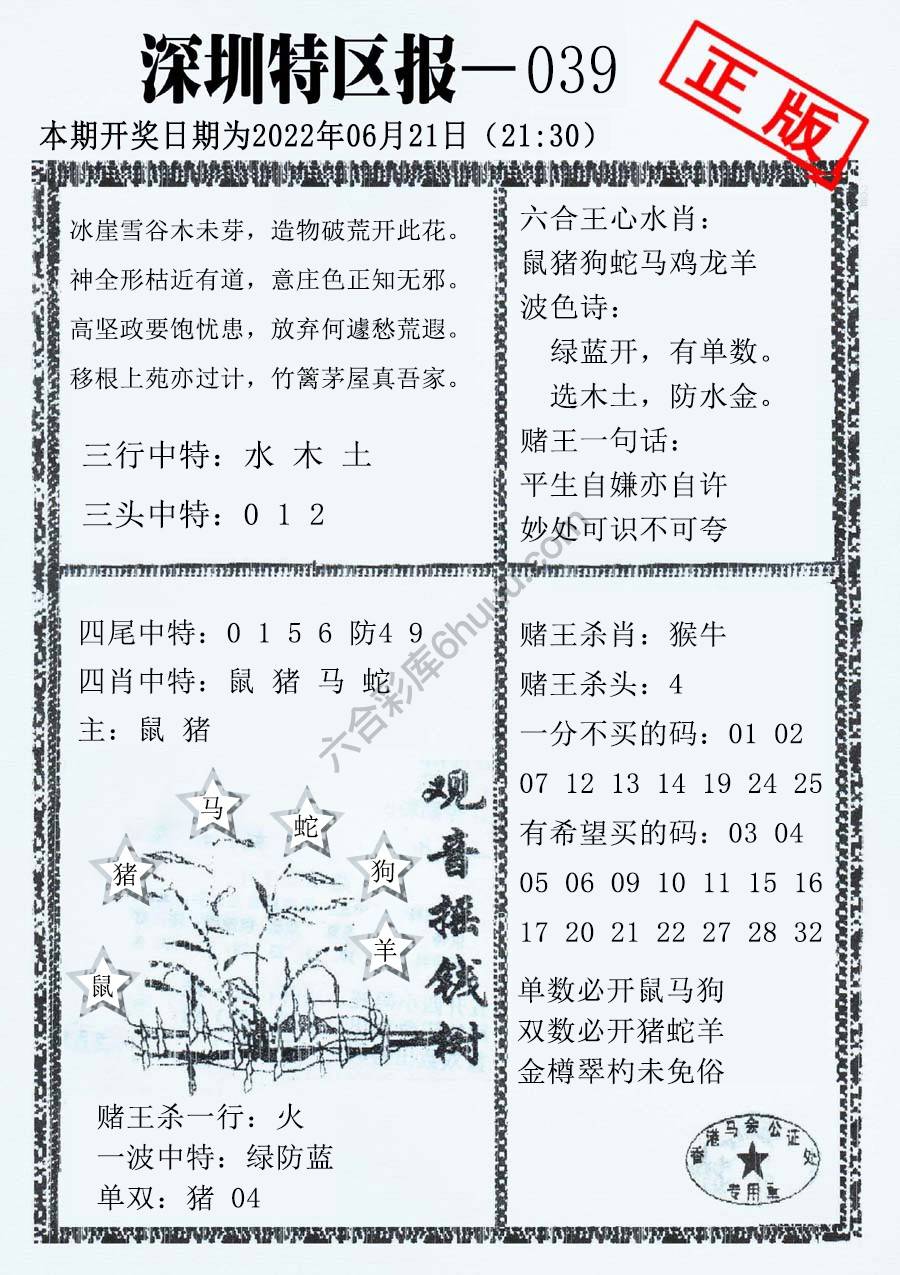 深圳特区报—039
正版
本期开奖日期为2022年06月21日（21:30）
冰崖雪谷木未芽，造物破荒开此花。
神全形枯近有道，意庄色正知无邪。
高坚政要饱忧患，放弃何遽愁荒遐。
移根上苑亦过计，竹篱茅屋真吾家。
三行中特：水 木 土
三头中特：0 1 2
六合王心水肖：
鼠猪狗蛇马鸡龙羊
波色诗：
绿蓝开，有单数。
选木土，防水金。
赌王一句话：
平生自嫌亦自许
妙处可识不可夸
四尾中特：0 1 5 6 防4 9
四肖中特：鼠 猪 马 蛇
主：鼠 猪
马
蛇
猪
狗
羊
鼠
观音摇钱树
赌王杀一行：火
一波中特：绿防蓝
单双：猪 04
赌王杀肖：猴牛
赌王杀头：4
一分不买的码：01 02
07 12 13 14 19 24 25
有希望买的码：03 04
05 06 09 10 11 15 16
17 20 21 22 27 28 32
单数必开鼠马狗
双数必开猪蛇羊
金樽翠杓未免俗
香港马会公证处
专用章
六合彩库6huuu.com